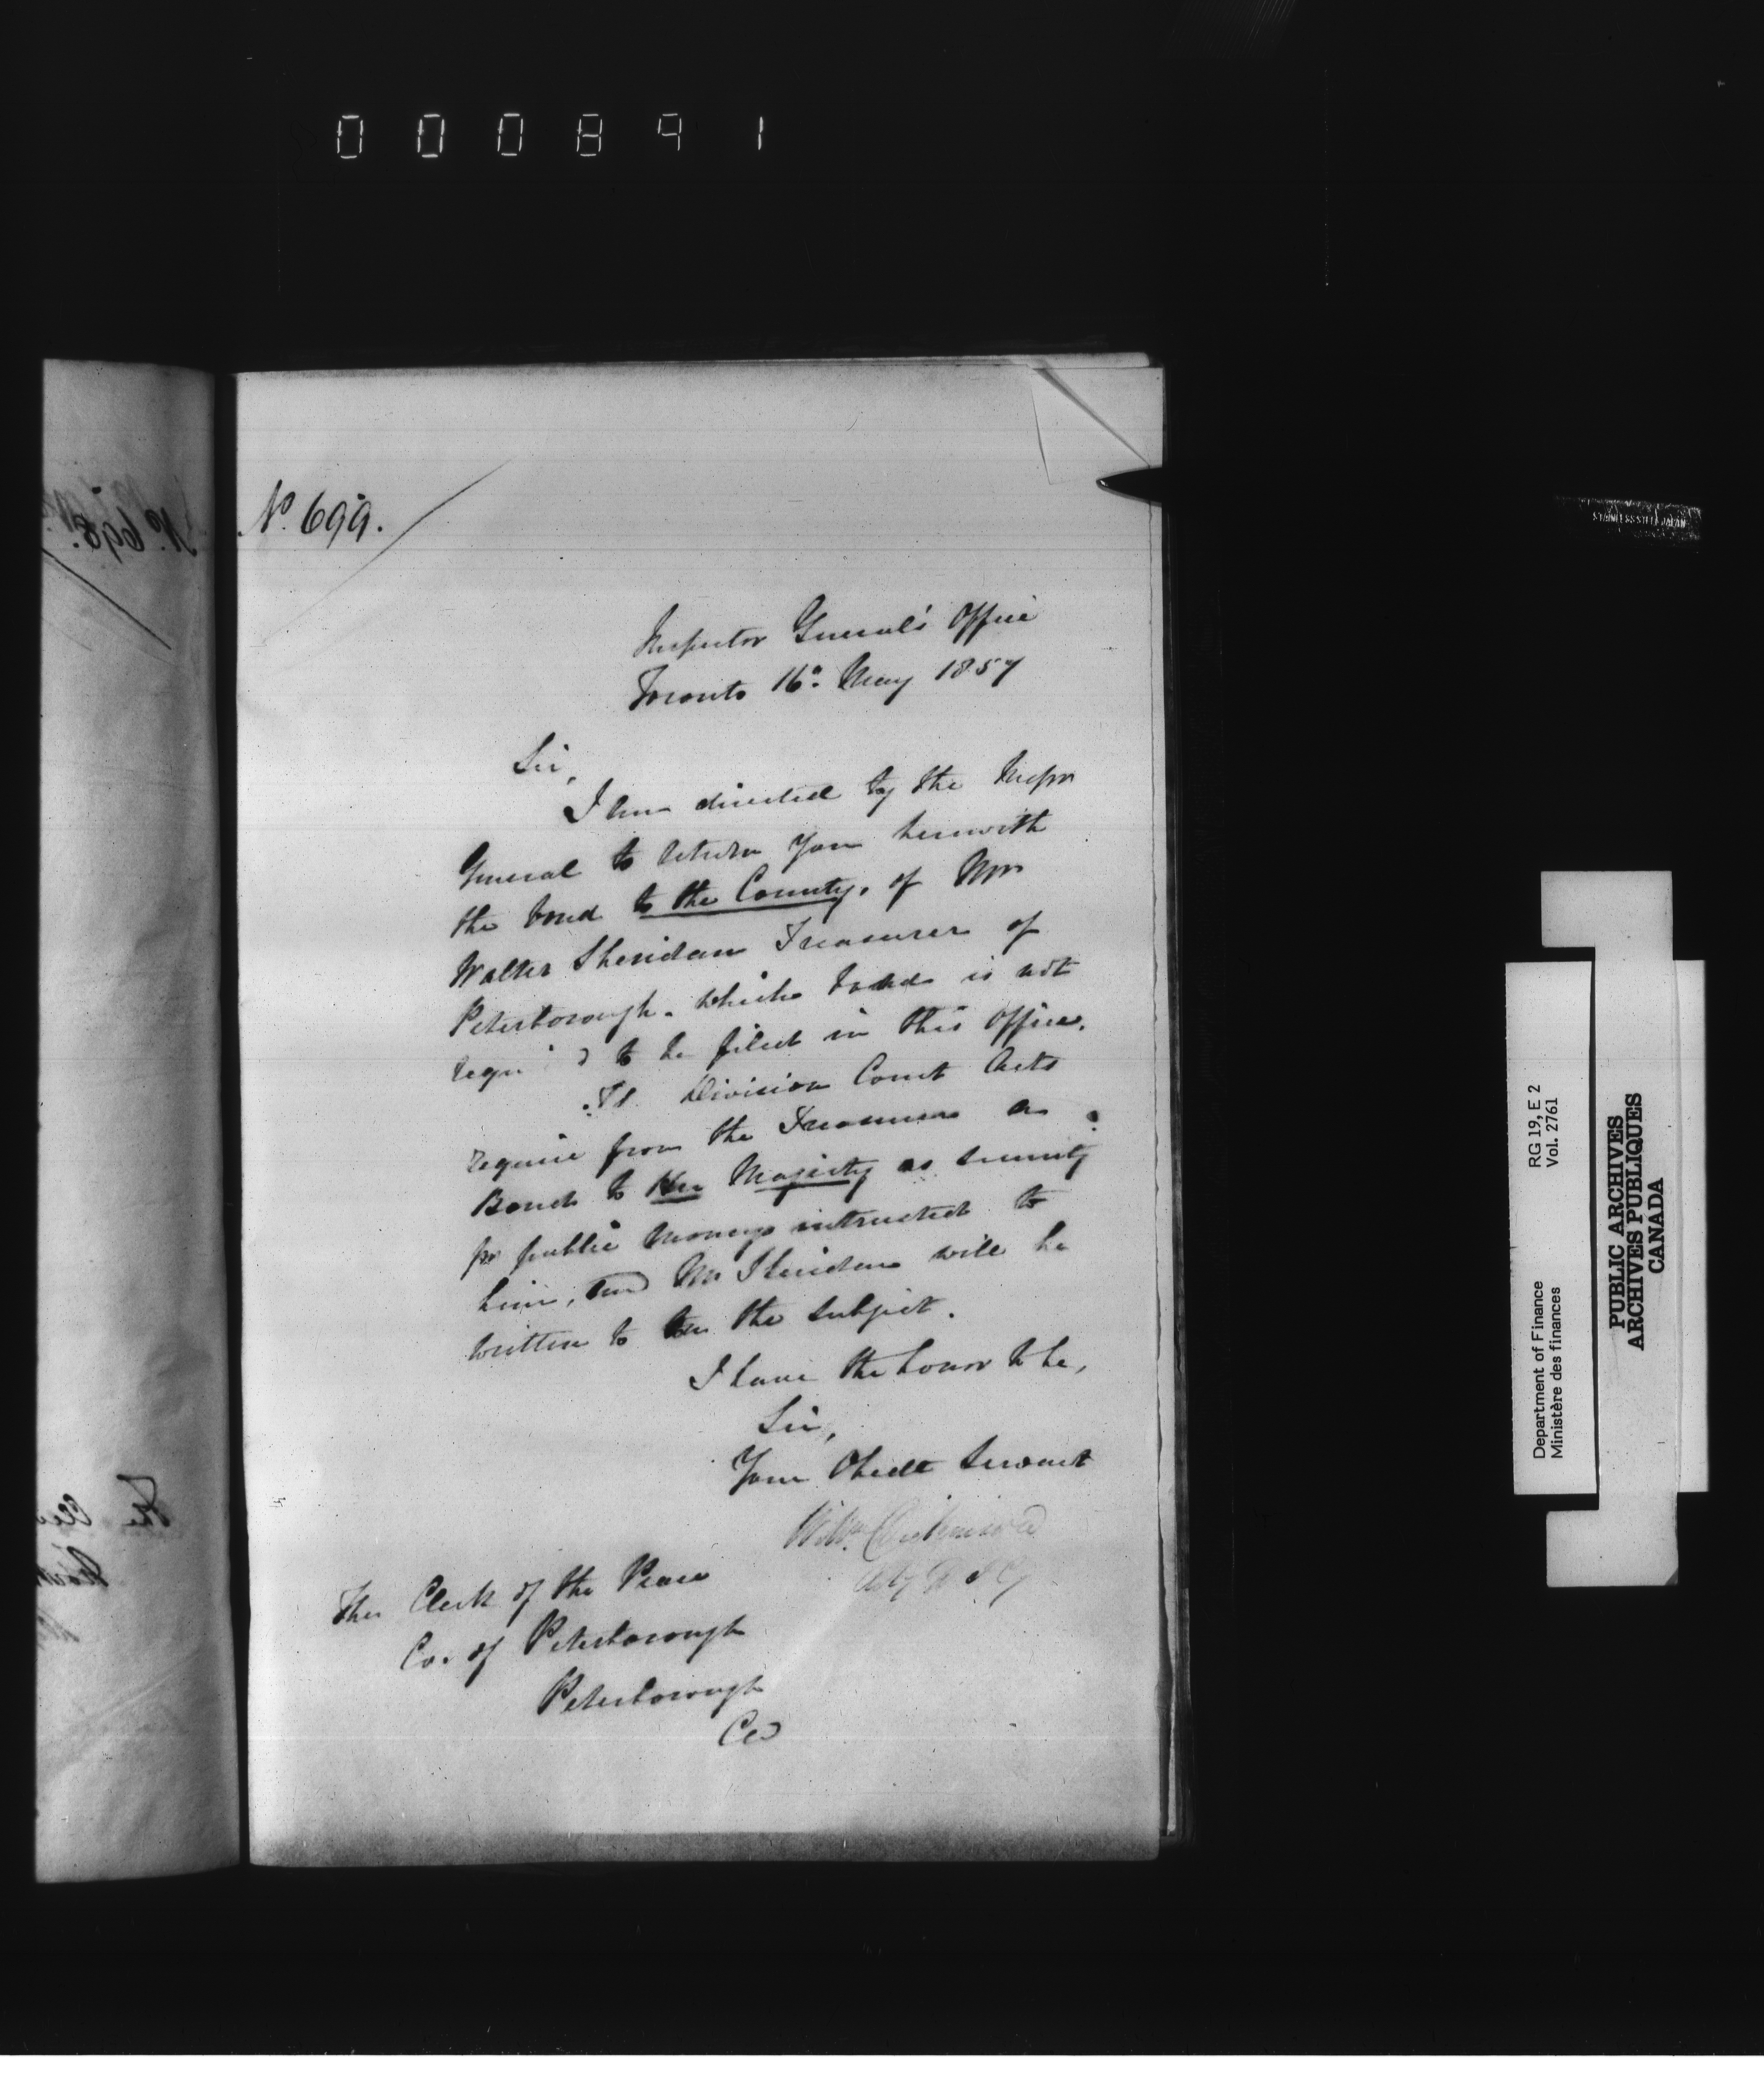 000891
No. 699.
Inspector General's Office
Toronto 16o. May 1857
Sir,
I am directed by the Inspr
General to return you herewith
the bond to the County, of Mr
Walter Sheridan Treasurer of
Peterborough. which bond is not
requi d to be filed in this Office.
Division Court Acts
require from the Treasurer a
Bond to Her Majesty as security
for public moneys intrusted to
him, and Mr Sheridan will be
written to on the subject.
I have the honor to be,
Sir,
Your Obedt Servant
Wm Dickinson
The Clerk of the Peace
Co. of Peterborough
Peterborough
CW
No. 698.
The
STAINLESS STEEL JAPAN
RG 19, E 2
Vol. 2761
Department of Finance
Ministère des finances
PUBLIC ARCHIVES
ARCHIVES PUBLIQUES
CANADA